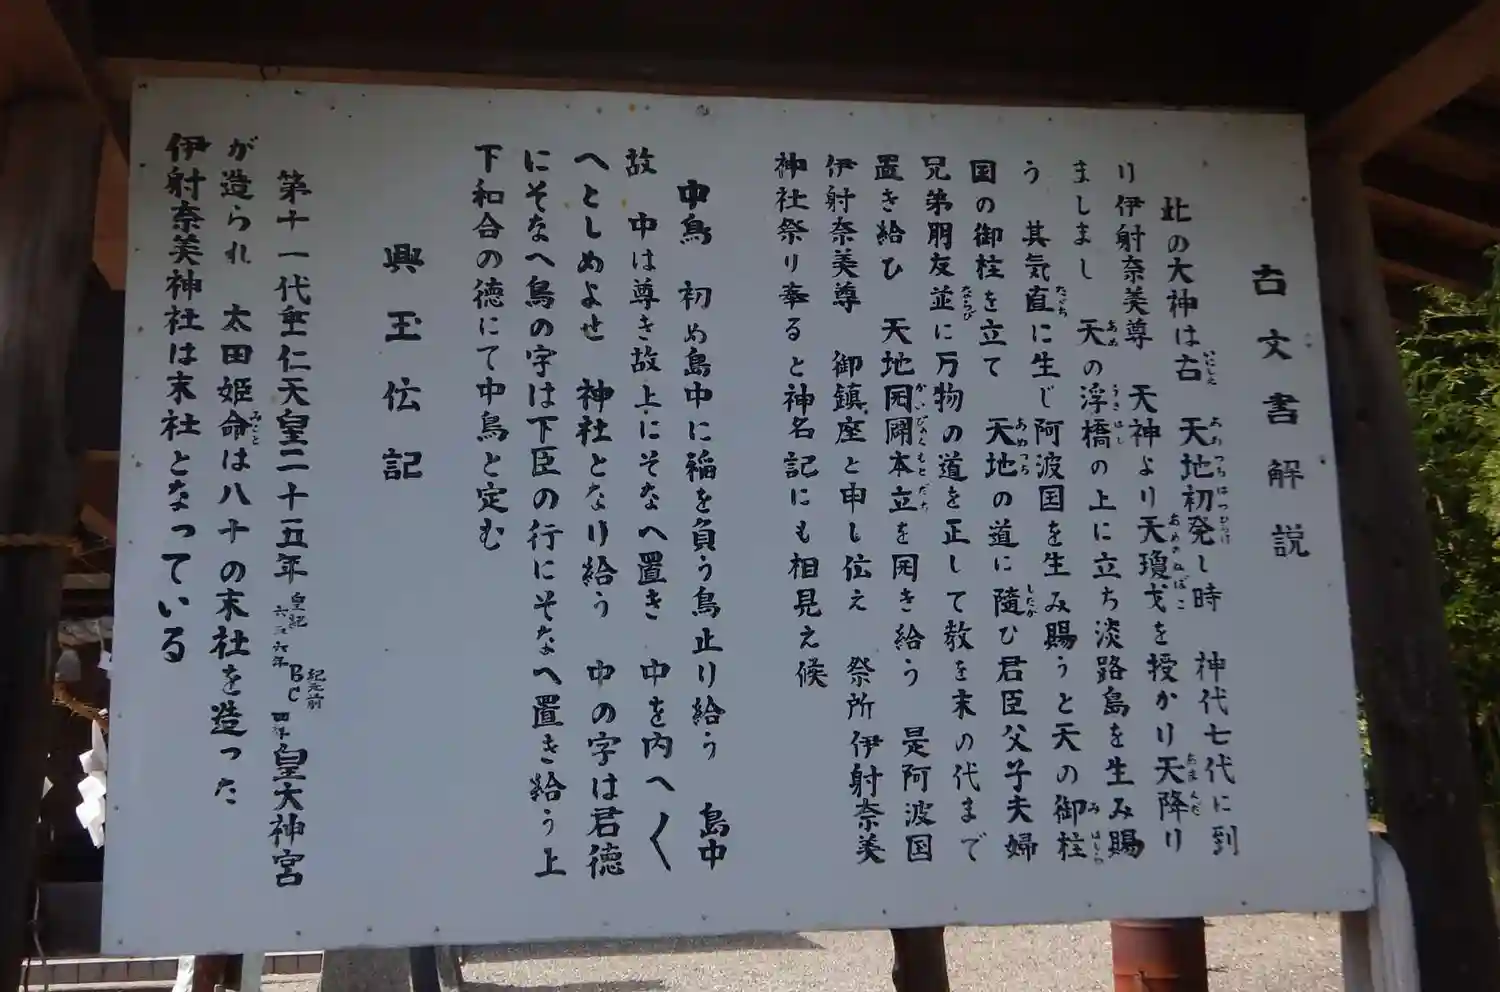 古文書解説
此の大神は古 天地初発し時 神代七代に到
り伊射奈美尊 天神より天瓊戈を授かり天降り
ましまし 天の浮橋の上に立ち淡路島を生み賜
う 其気直に生じ阿波国を生み賜うと天の御柱
国の御柱を立て 天地の道に隨ひ君臣父子夫婦
兄弟朋友並に万物の道を正して教を末の代まで
置き給ひ 天地開闢本立を開き給う 是阿波国
伊射奈美尊 御鎮座と申し伝え 祭所伊射奈美
神社祭り奉ると神名記にも相見え候
中鳥 初め島中に稲を負う鳥止り給う 島中
故 中は尊き故上にそなへ置き 中を内へ〱
へとしめよせ 神社となり給う 中の字は君徳
にそなへ鳥の字は下臣の行にそなへ置き給う上
下和合の徳にて中鳥と定む
興玉伝記
第十一代垂仁天皇二十五年 皇紀六三六年 紀元前BC四年 皇大神宮
が造られ 太田姫命は八十の末社を造った
伊射奈美神社は末社となっている